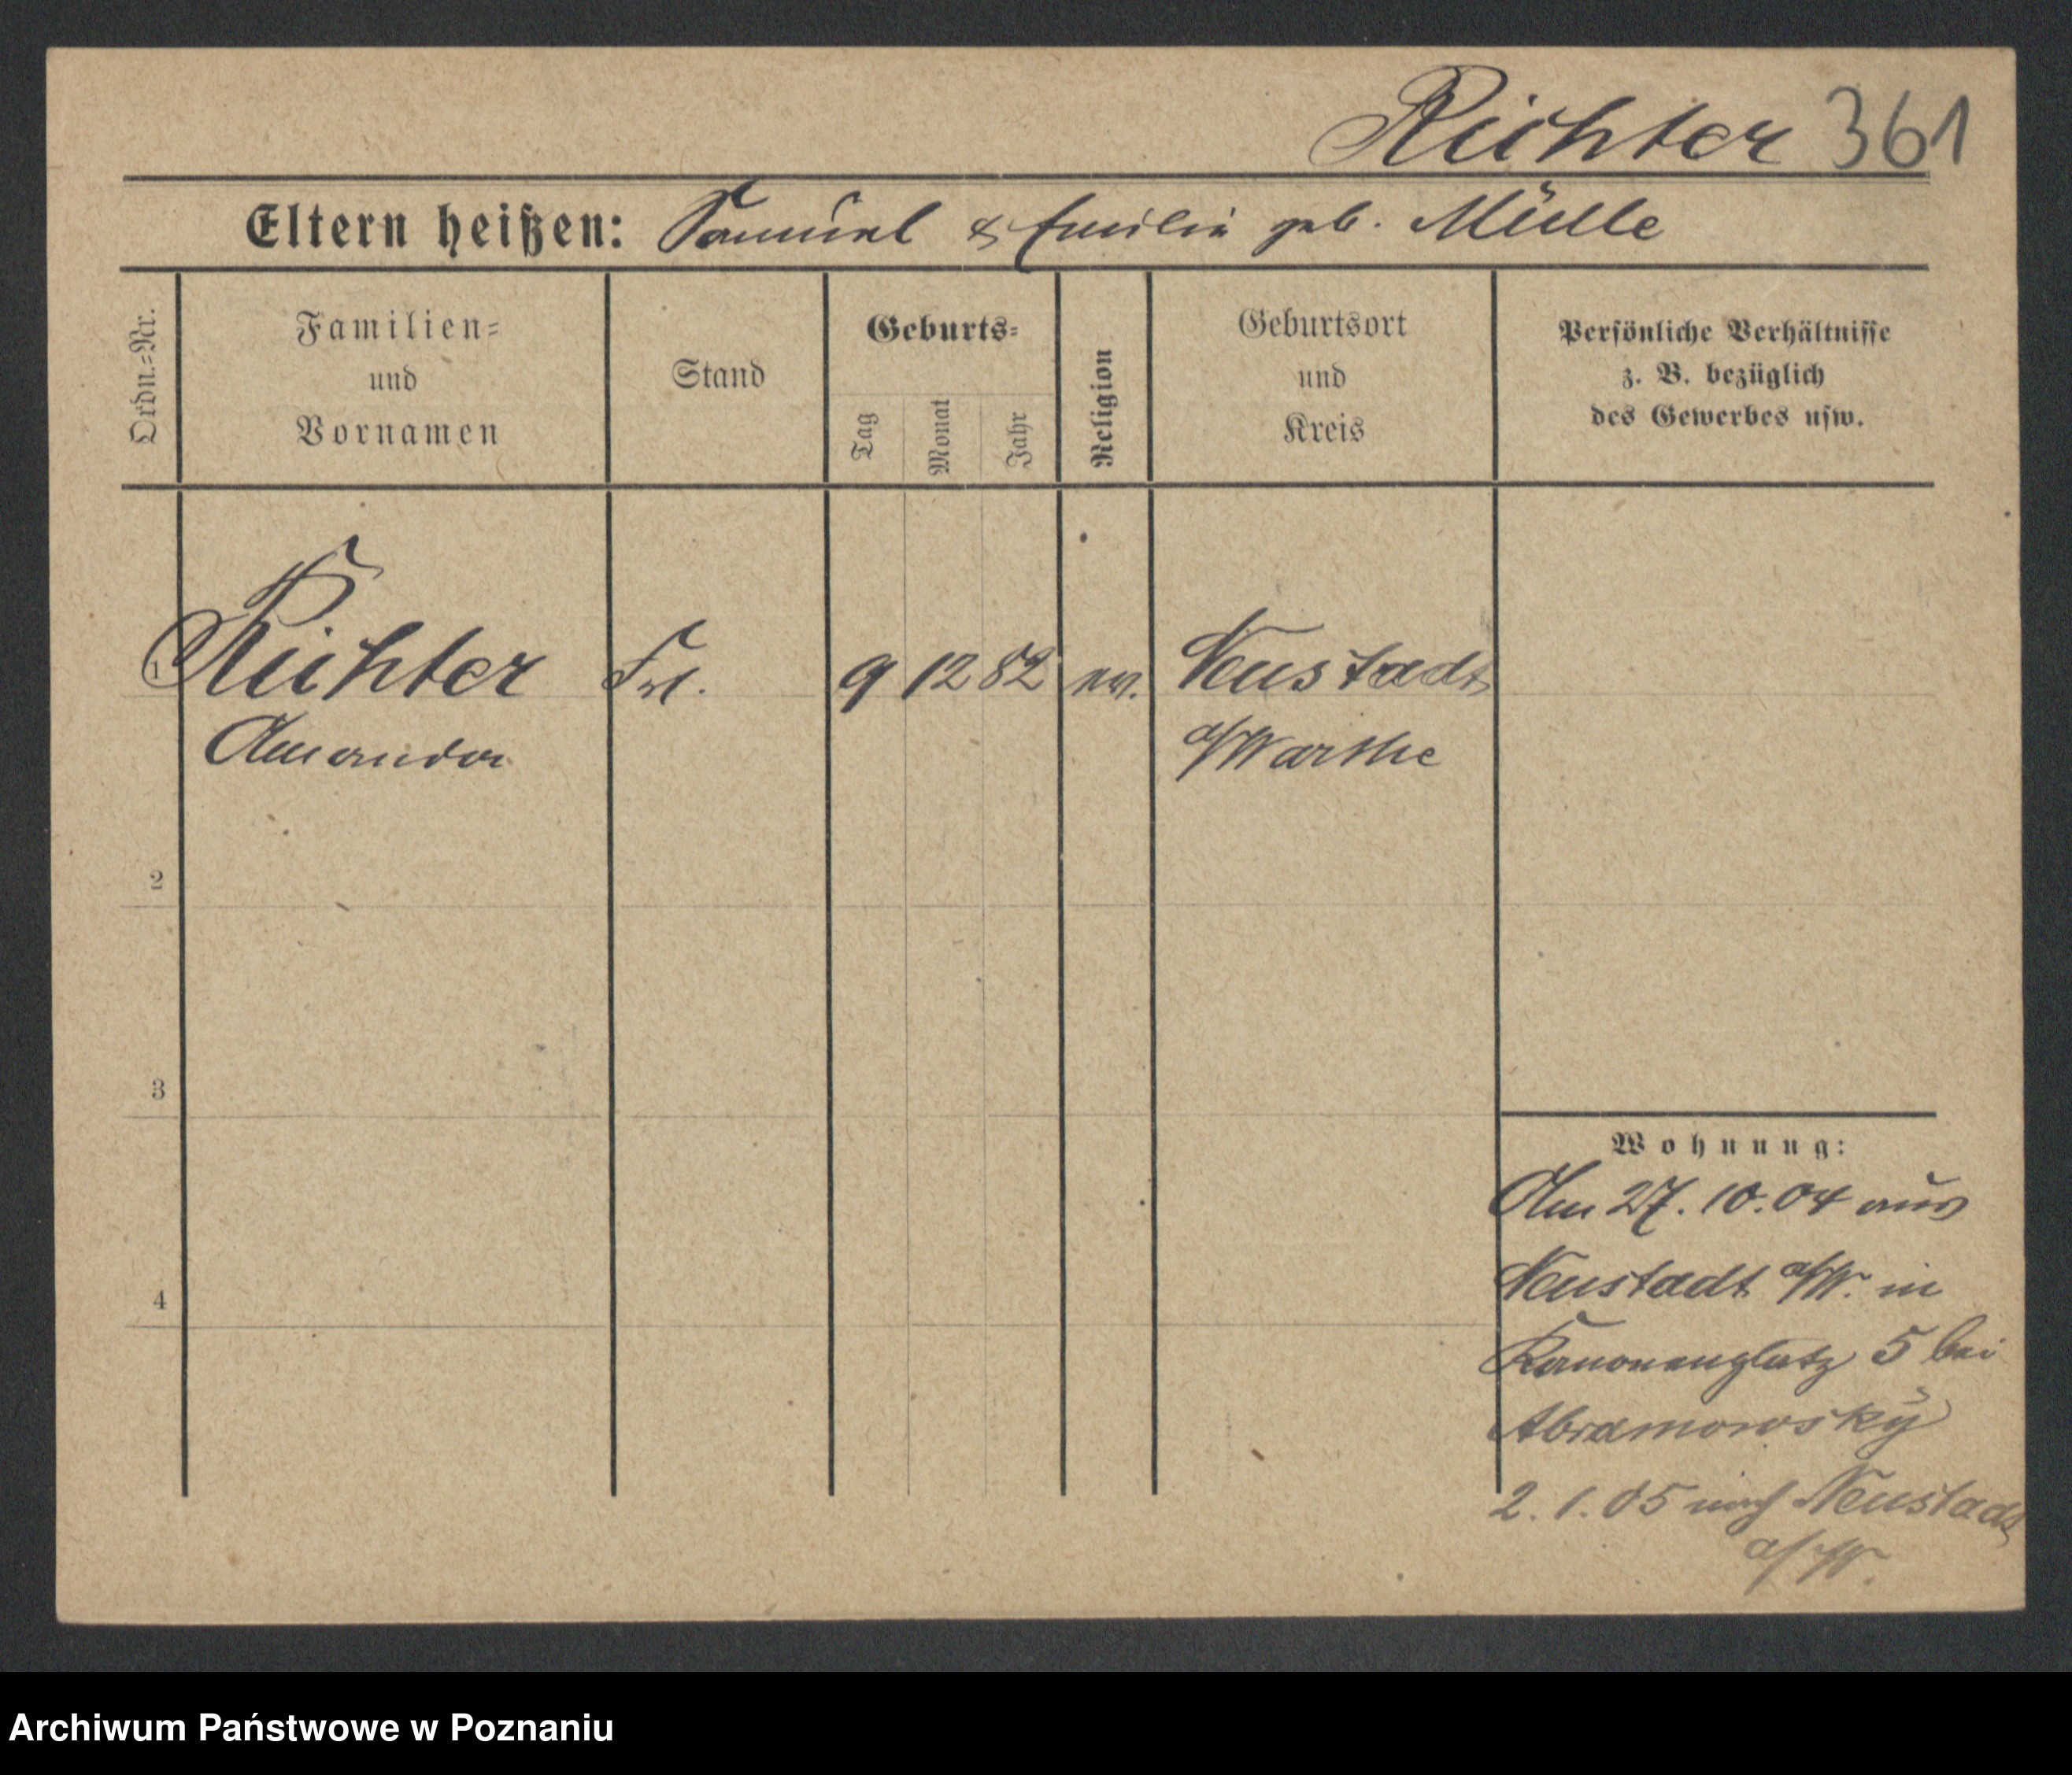 Richter 361
Eltern heißen: Samuel & Emilie geb. Mülle
Ordn.=Nr.
Familien=
und
Vornamen
Stand
Geburts=
Tag
Monat
Jahr
Religion
Geburtsort
und
Kreis
Persönliche Verhältnisse
z. B. bezüglich
des Gewerbes usw.
1 Richter Frl. 9 12 82 ev. Neustadt
Amanda a/Warthe
2
3
4
Wohnung:
Am 27. 10. 04 aus
Neustadt a/W. in
Kanonenplatz 5 bei
Abramowsky
2. 1. 05 nach Neustadt
a/W.
Archiwum Państwowe w Poznaniu